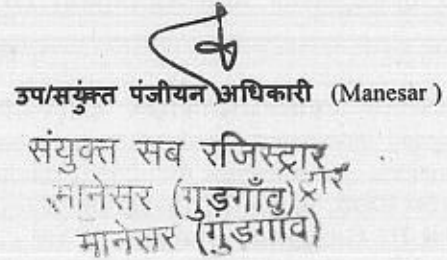 उप/सयुंक्त पंजीयन अधिकारी (Manesar )
संयुक्त सब रजिस्ट्रार
मानेसर (गुड़गाँव) ट्रार
मानेसर (गुडगांव)